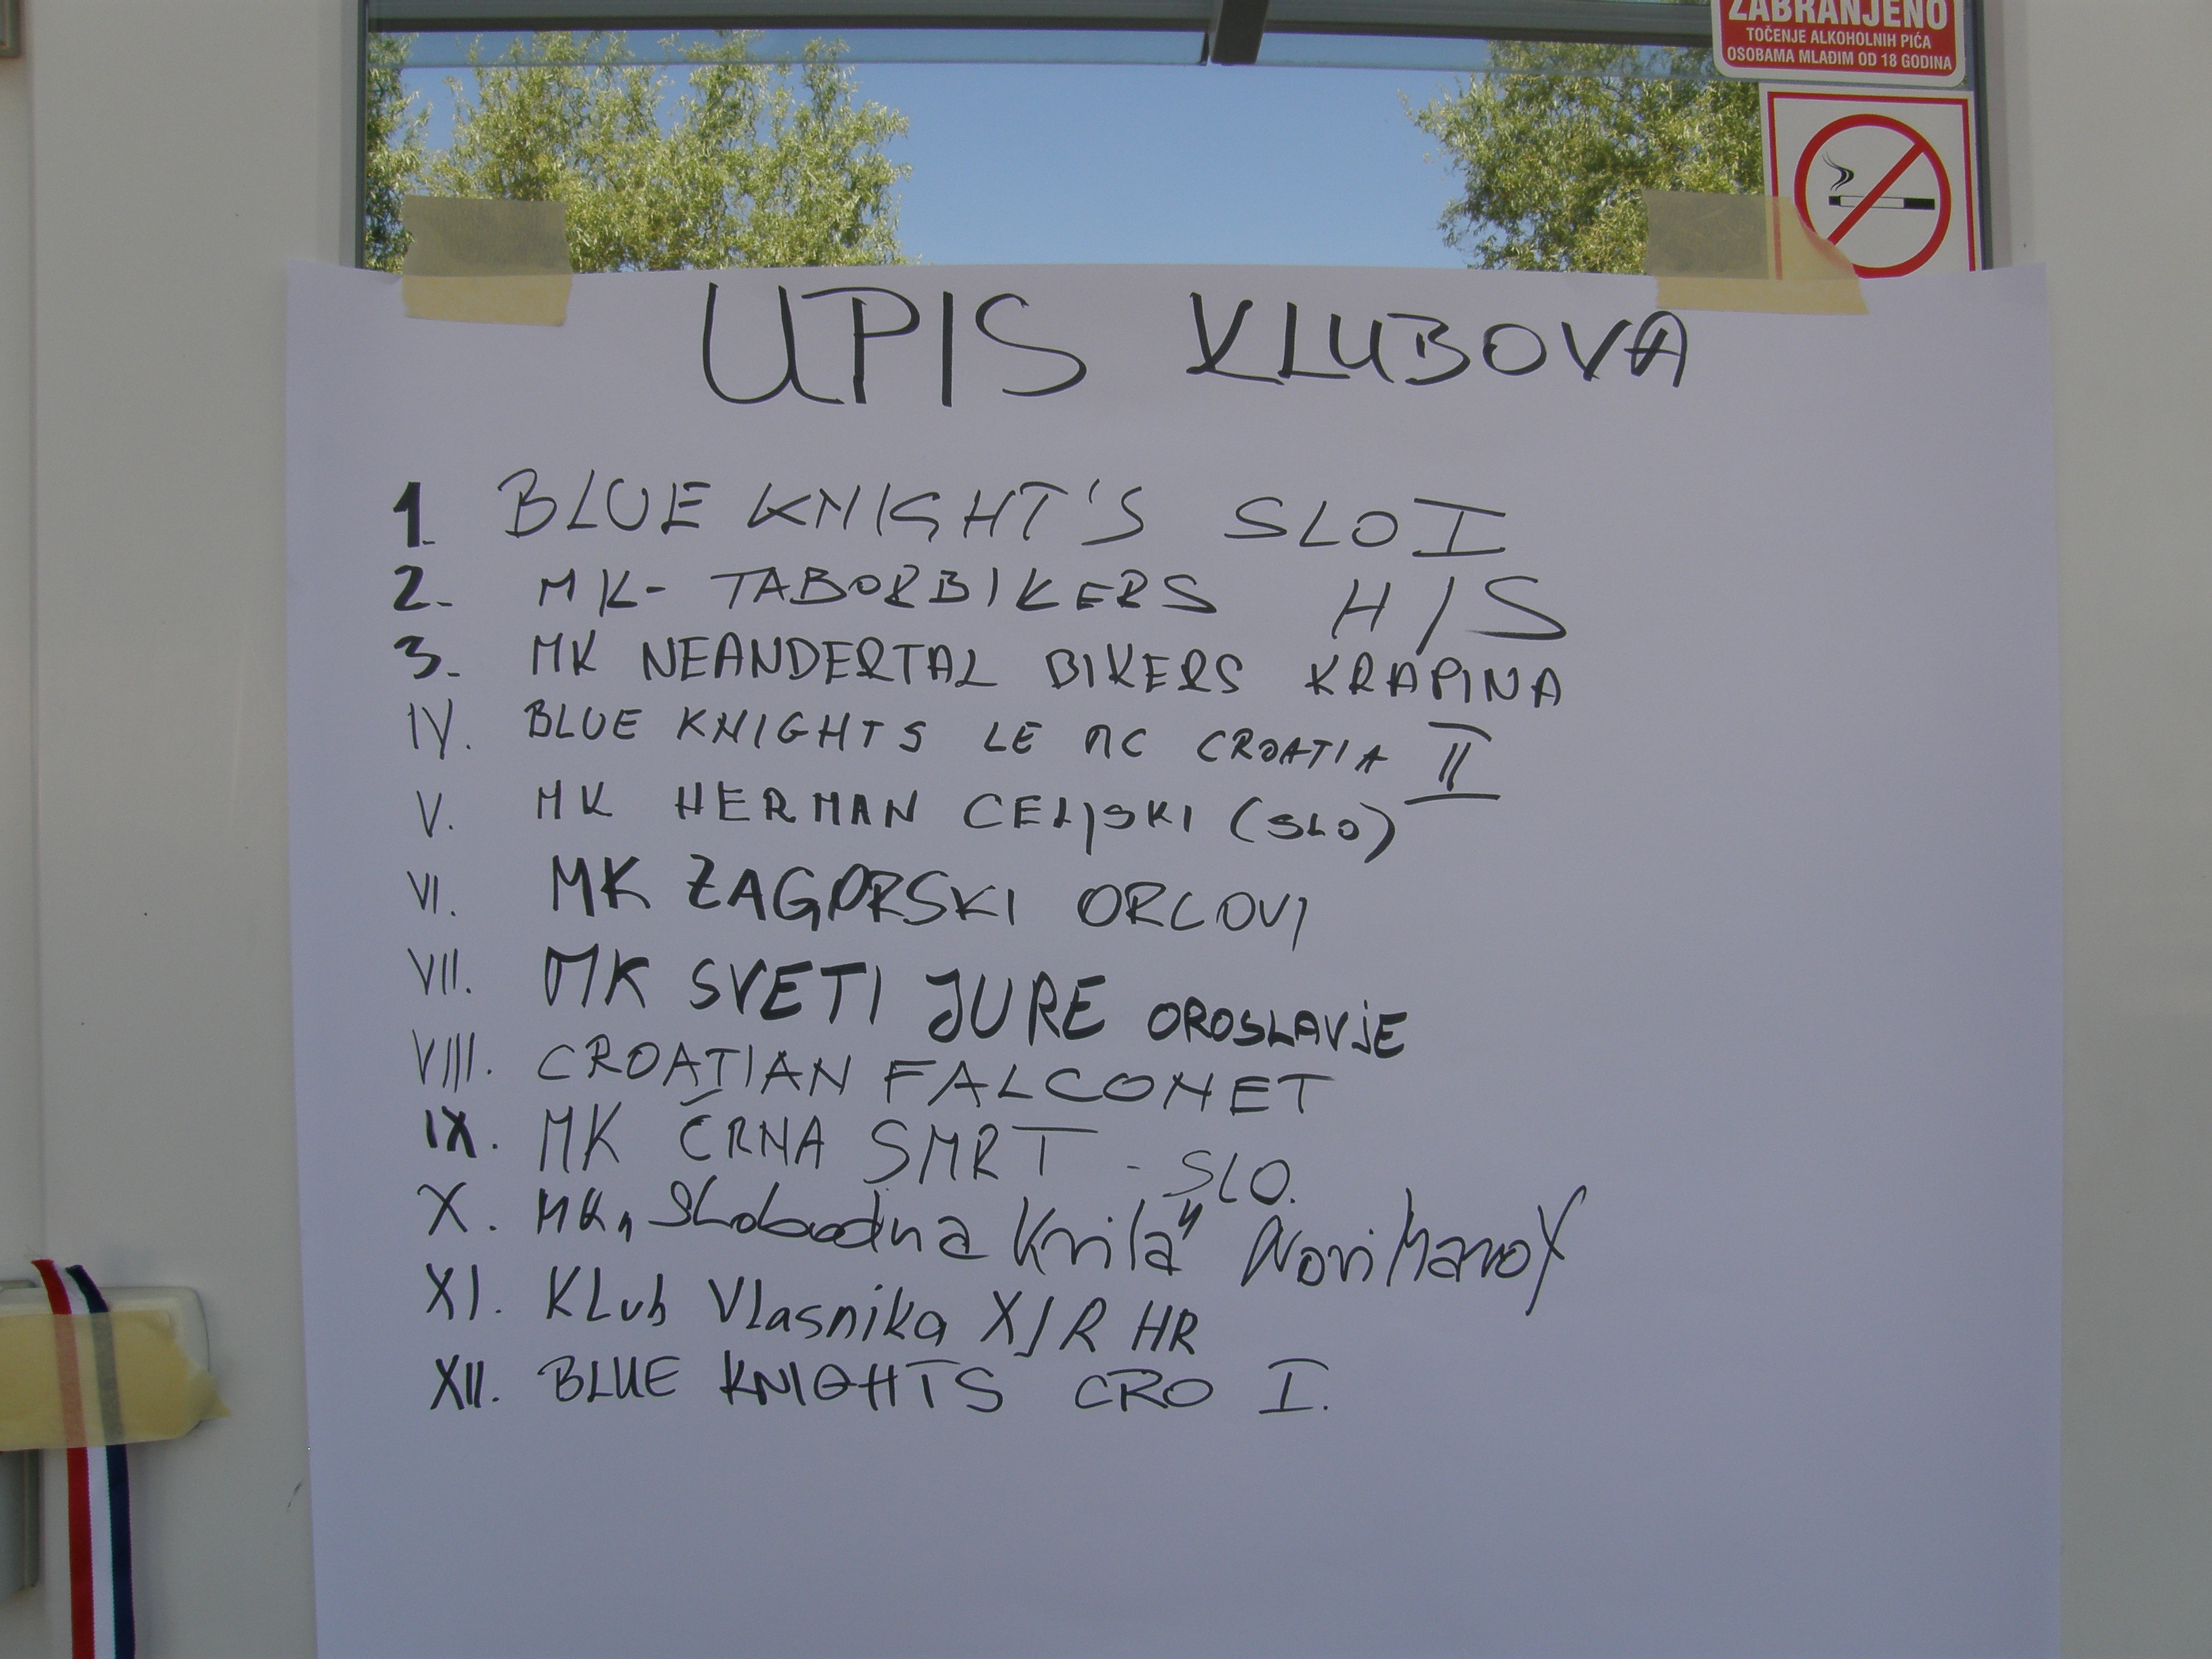 ZABRANJENO
TOČENJE ALKOHOLNIH PIĆA
OSOBAMA MLAĐIM OD 18 GODINA
UPIS KLUBOVA
1. BLUE KNIGHT'S SLO I
2. MK- TABORBIKERS H/S
3. MK NEANDERTAL BIKERS KRAPINA
IV. BLUE KNIGHTS LE MC CROATIA II
V. MK HERMAN CELJSKI (SLO)
VI. MK ZAGORSKI ORLOVI
VII. MK SVETI JURE OROSLAVjE
VIII. CROATIAN FALCONET
IX. MK ČRNA SMRT - SLO.
X. MK „Slobodna Krila" Novi Marof
XI. KLub Vlasnika XJR HR
XII. BLUE KNIGHTS CRO I.